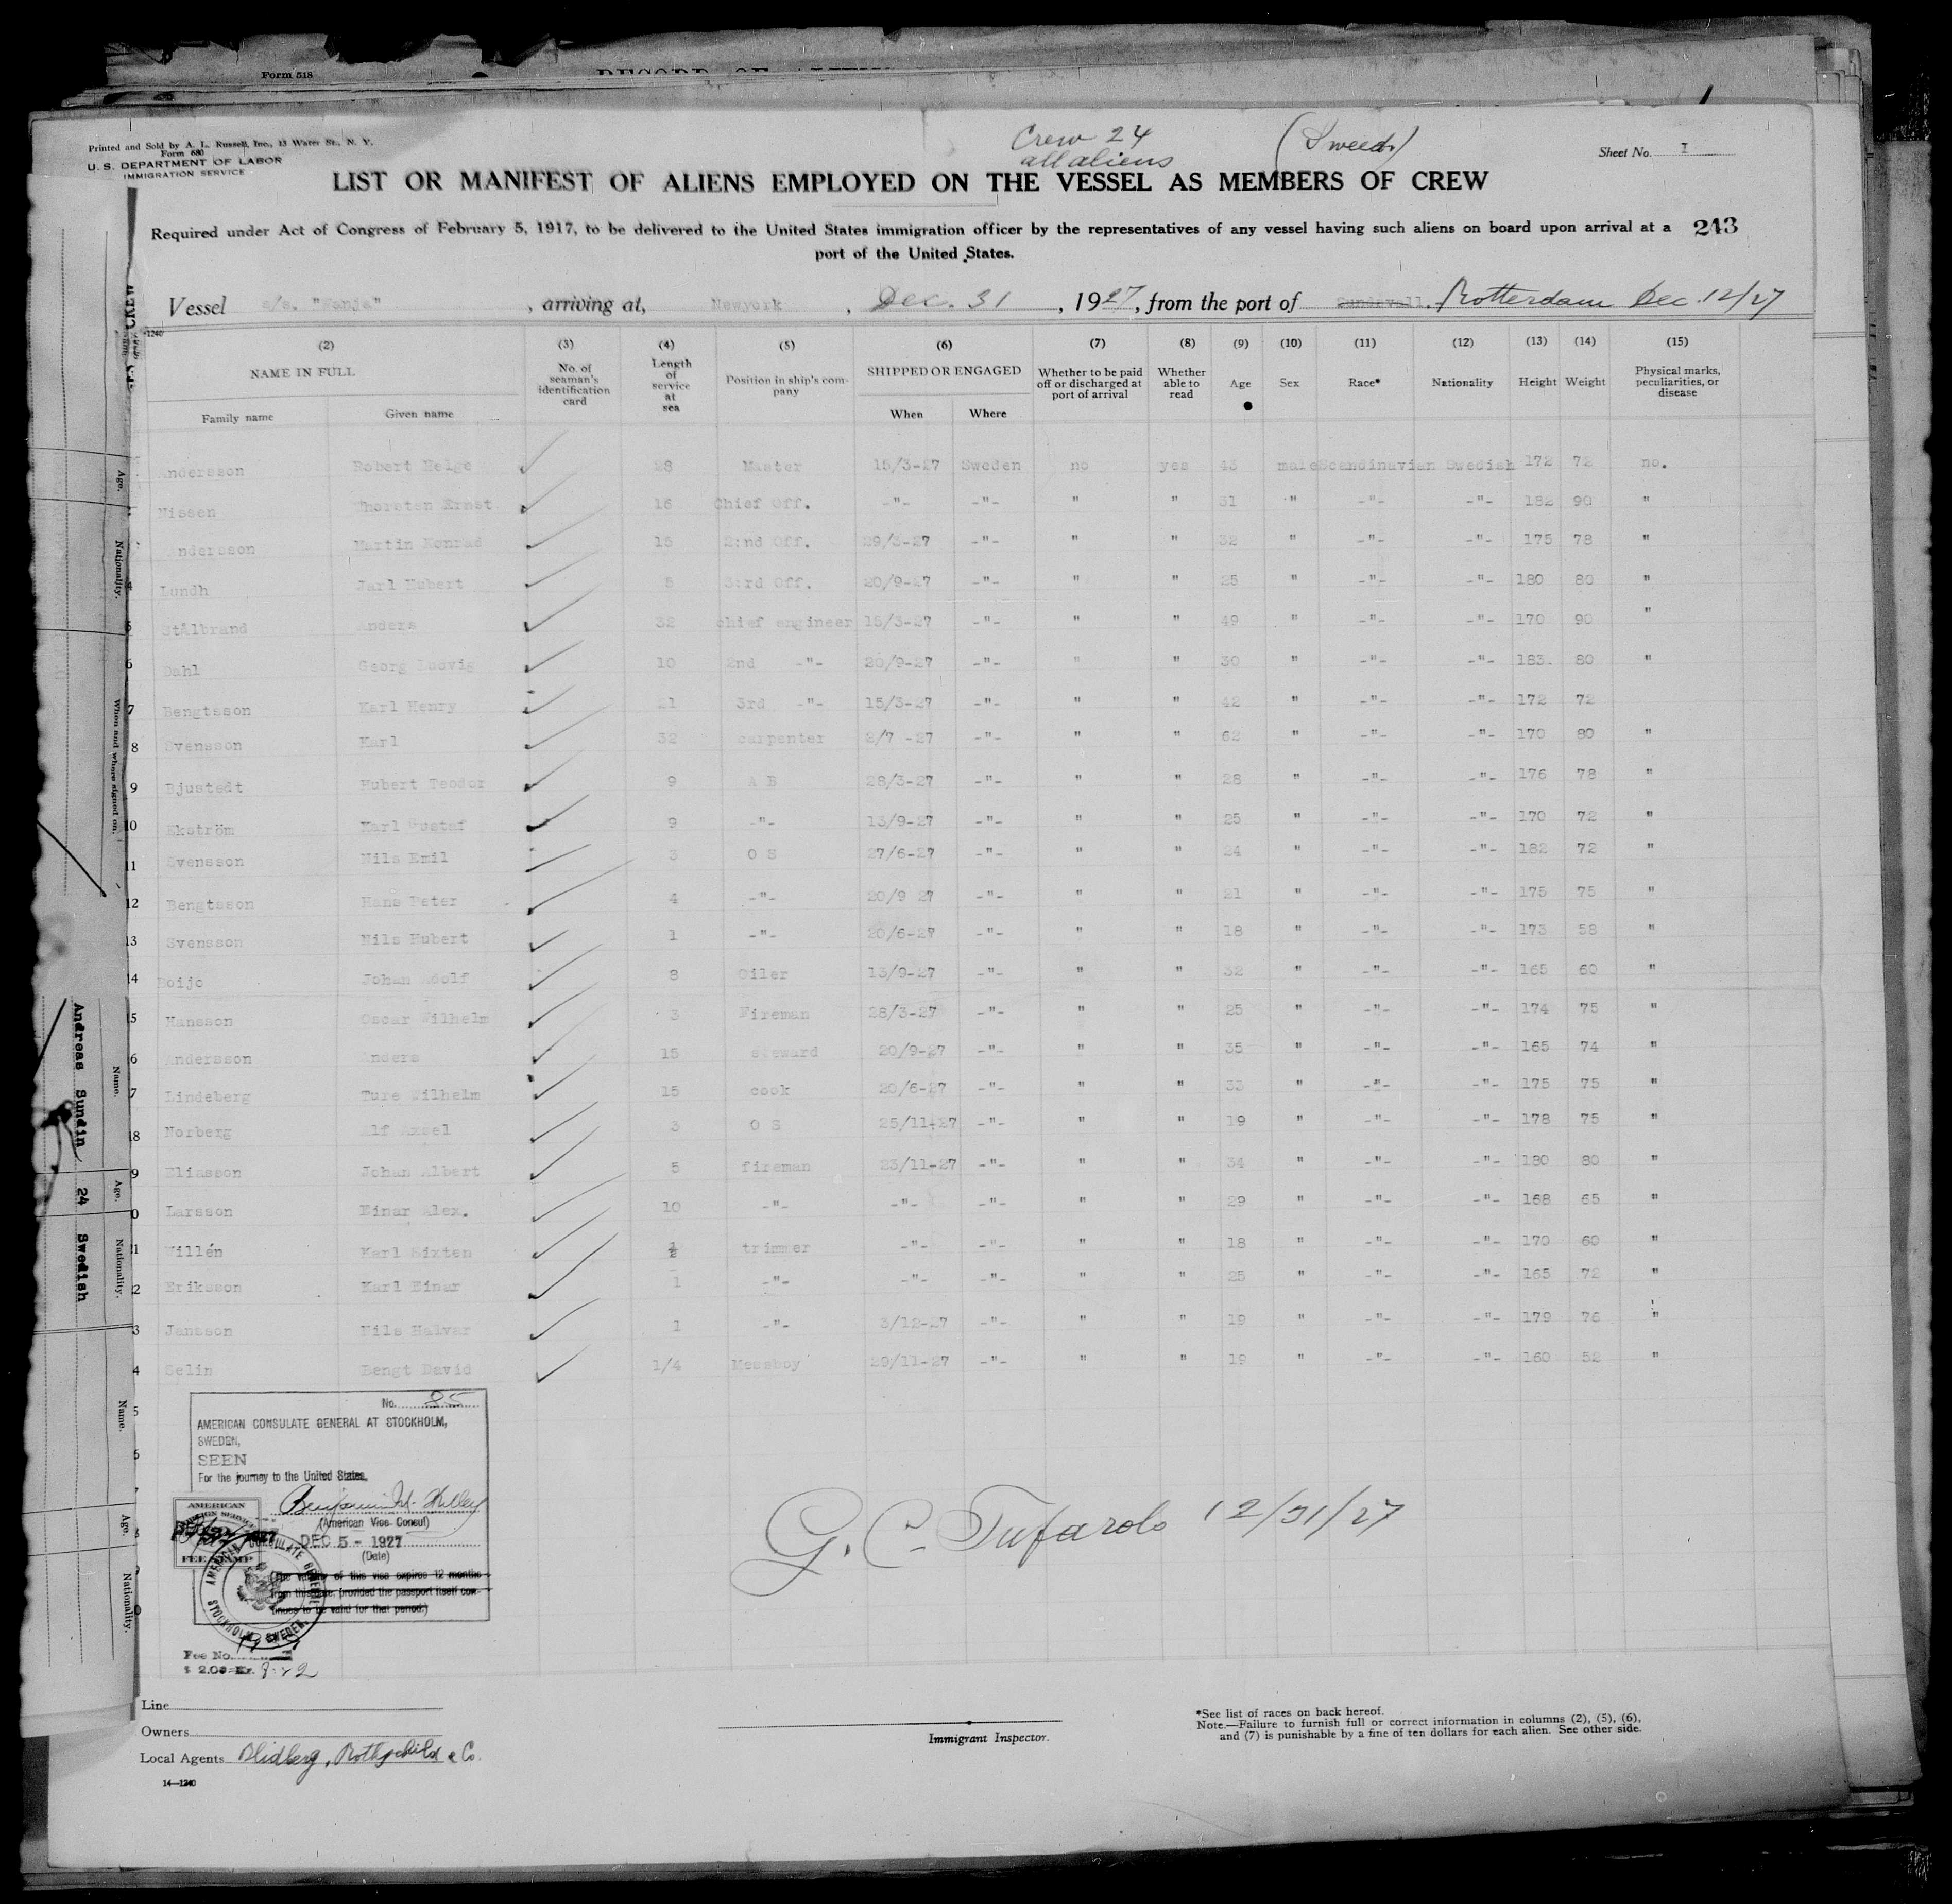 Form 518
Printed and Sold by A. L. Russell, Inc., 13 Water St., N. Y.
Form 680
U. S. DEPARTMENT OF LABOR
IMMIGRATION SERVICE
Crew 24
all aliens
(Sweeds)
Sheet No. I
LIST OR MANIFEST OF ALIENS EMPLOYED ON THE VESSEL AS MEMBERS OF CREW
Required under Act of Congress of February 5, 1917, to be delivered to the United States immigration officer by the representatives of any vessel having such aliens on board upon arrival at a 243
port of the United States.
Vessel s/s. "Wanja", arriving at, Newyork, Dec. 31, 1927, from the port of Sundsvall. Rotterdam Dec. 12/27
(2) (3) (4) (5) (6) (7) (8) (9) (10) (11) (12) (13) (14) (15)
NAME IN FULL No. of seaman's identification card Length of service at sea Position in ship's company SHIPPED OR ENGAGED Whether to be paid off or discharged at port of arrival Whether able to read Age Sex Race* Nationality Height Weight Physical marks, peculiarities, or disease
Family name Given name When Where
Andersson Robert Helge 28 Master 15/3-27 Sweden no yes 43 male Scandinavian Swedish 172 72 no.
Nissen Thorsten Ernst 16 Chief Off. -"- -"- " " 31 " -"- -"- 182 90 "
Andersson Martin Konrad 15 2:nd Off. 29/3-27 -"- " " 32 " -"- -"- 175 78 "
4 Lundh Jarl Hubert 5 3:rd Off. 20/9-27 -"- " " 25 " -"- -"- 180 80 "
5 Stålbrand Anders 32 chief engineer 15/3-27 -"- " " 49 " -"- -"- 170 90 "
6 Dahl Georg Lodvig 10 2nd -"- 20/9-27 -"- " " 30 " -"- -"- 183. 80 "
7 Bengtsson Karl Henry 21 3rd -"- 15/3-27 -"- " " 42 " -"- -"- 172 72
8 Svensson Karl 32 carpenter 2/7 -27 -"- " " 62 " -"- -"- 170 80 "
9 Bjustedt Hubert Teodor 9 A B 28/3-27 -"- " " 28 " -"- -"- 176 78 "
10 Ekström Karl Gustaf 9 -"- 13/9-27 -"- " " 25 " -"- -"- 170 72 "
11 Svensson Nils Emil 3 O S 27/6-27 -"- " " 24 " -"- -"- 182 72 "
12 Bengtsson Hans Peter 4 -"- 20/9 27 -"- " " 21 " -"- -"- 175 75 "
13 Svensson Nils Hubert 1 -"- 20/6-27 -"- " " 18 " -"- -"- 173 58 "
14 Boijo Johan Adolf 8 Oiler 13/9-27 -"- " " 32 " -"- -"- 165 60 "
5 Hansson Oscar Wilhelm 3 Fireman 28/3-27 -"- " " 25 " -"- -"- 174 75 "
6 Andersson Anders 15 steward 20/9-27 -"- " " 35 " -"- -"- 165 74 "
7 Lindeberg Ture Wilhelm 15 cook 20/6-27 -"- " " 33 " -"- -"- 175 75 "
18 Norberg Alf Axsel 3 O S 25/11-27 -"- " " 19 " -"- -"- 178 75 "
9 Eliasson Johan Albert 5 fireman 23/11-27 -"- " " 34 " -"- -"- 180 80 "
0 Larsson Einar Alex. 10 -"- -"- -"- " " 29 " -"- -"- 168 65 "
1 Villén Karl Sixten ½ trimmer -"- -"- " " 18 " -"- -"- 170 60 "
2 Eriksson Karl Einar 1 -"- -"- -"- " " 25 " -"- -"- 165 72 "
3 Jansson Nils Halvar 1 -"- 3/12-27 -"- " " 19 " -"- -"- 179 76 "
4 Selin Bengt David 1/4 Messboy 29/11-27 -"- " " 19 " -"- -"- 160 52 "
No. 85
AMERICAN CONSULATE GENERAL AT STOCKHOLM,
SWEDEN,
SEEN
For the journey to the United States.
(American Vice Consul)
DEC 5 - 1927
(Date)
The validity of this visa expires 12 months
from this date, provided the passport itself con-
tinues to be valid for that period.)
AMERICAN
FOREIGN SERVICE
FEE STAMP
AMERICAN CONSULATE GENERAL
STOCKHOLM, SWEDEN.
Fee No.
$ 2.00
G. C. Tufarolo 12/31/27
Line
Owners
Local Agents Blidberg, Rothschild & Co.
14—1240
Immigrant Inspector.
*See list of races on back hereof.
Note.—Failure to furnish full or correct information in columns (2), (5), (6),
and (7) is punishable by a fine of ten dollars for each alien. See other side.
Age.
Nationality.
When and where signed on.
Name.
Age.
Nationality.
Name.
Age.
Nationality.
Andreas Sundin 24 Swedish